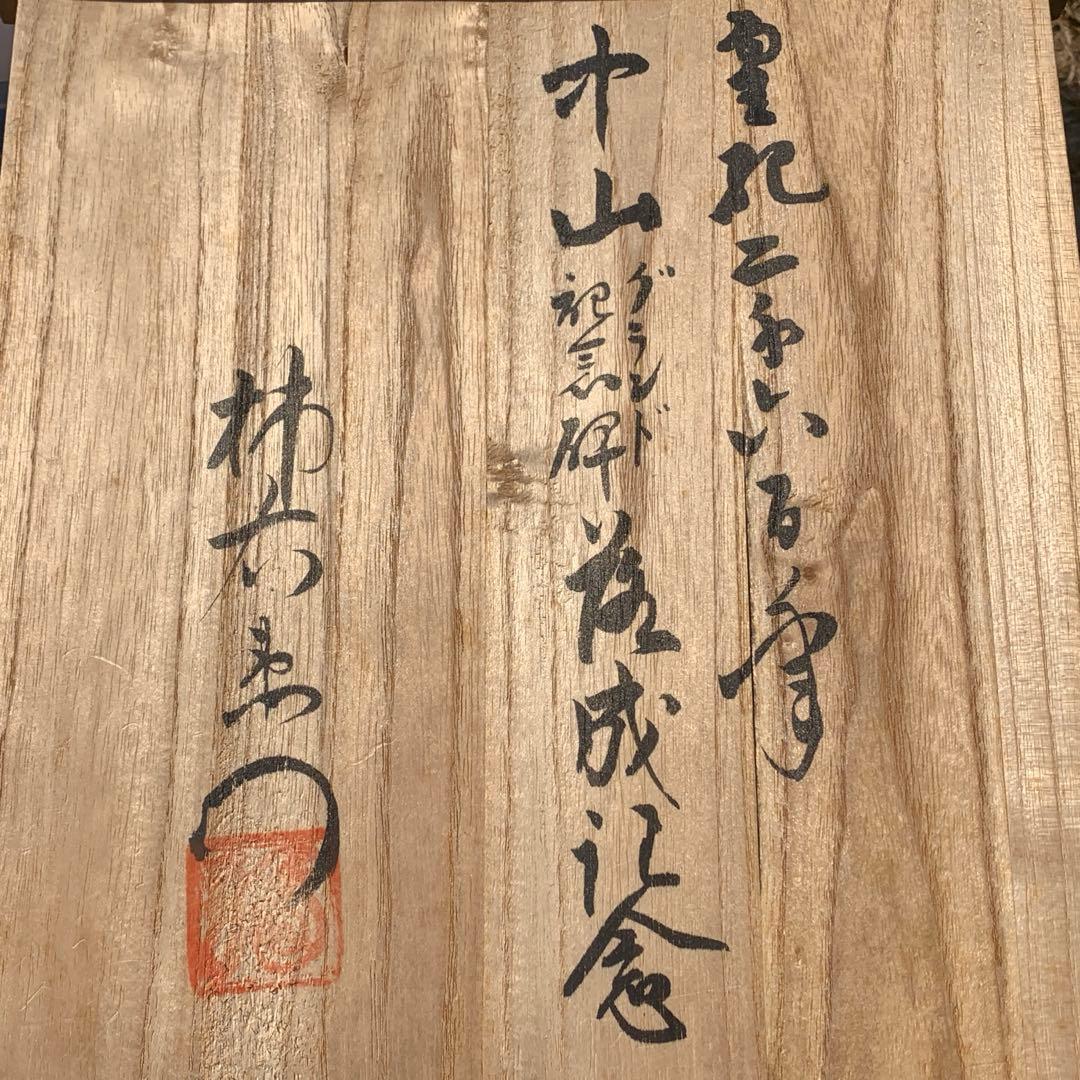 皇紀二千六百年
中山
グランド
紀念碑
落成記念
柿右衛門